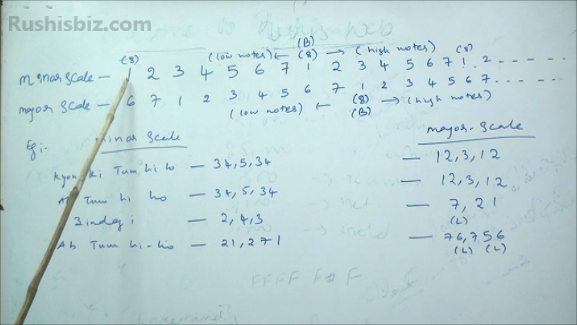 Rushisbiz.com
(8) (low notes) ← (B) (8) → (high notes) (8)
minor scale - 1 2 3 4 5 6 7 1 2 3 4 5 6 7 1 . 2 - - - - - -
major scale - 6 7 1 2 3 4 5 6 7 1 2 3 4 5 6 7 - - - - -
(low notes) ← (8) → (high notes)
(B)
Eg:- minor scale major-scale
Kyon ki Tum hi ho - 34,5,34 - 12,3,12
Ab Tum hi ho - 34,5,34 - 12,3,12
Zindagi - 2,4,3 - 7,21
(L)
Ab Tum hi-ho - 21,271 - 76,756
(L) (L)
FFFF F# F